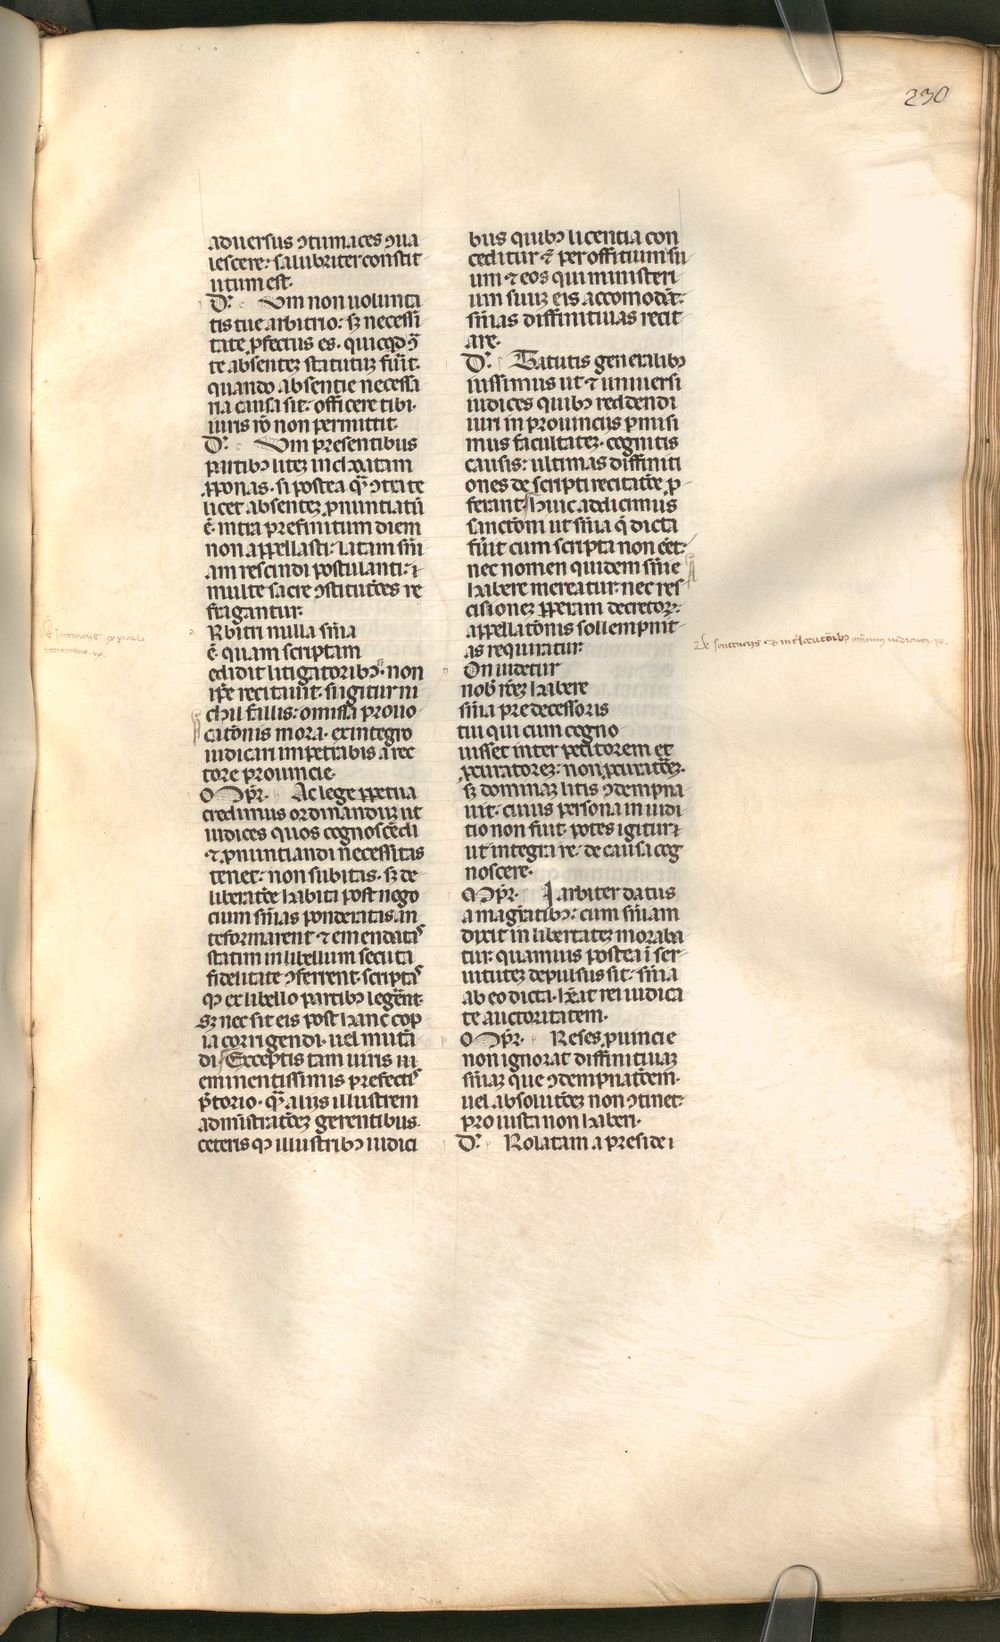 230
aduersus ↄtumaces ↄua
lescere: salubriter constit
utum est.
D'. Vm non uolunta
tis tue arbitrio: sꝫ necessi
tate ꝓfectus es. quicqd ↄ̄
te absentez statutuz fuīt.
quando absentie necessa
ria causa sit: officere tibi.
iuris ro non permittit.
D'. Vm presentibus
partibꝫ litez inchoatam
ꝓponas. si postea q̄ ↄtra te
licet absentez ꝓnuntiatū
ē. intra prefinitum diem
non appellasti: Latam sni
am rescindi postulanti: i
multe sacre ↄstitutōes re
fragantur.
Rbitri nulla snia
ē quam scriptam
edidit litigatoribꝫ. non
ipse recitauit. si igitur ni
chil fallis: omissa prouo
catōnis mora. ex integro
iudicari impetrabis a rec
tore prouincie.
De sentenciis ex periculo
recitandis. R.
Ompr. Ac lege ꝑpetua
credimus ordinanduz ut
iudices quos cognoscēdi
⁊ ꝓnuntiandi necessitas
tenet: non subitas. sꝫ de
liberatōe habita post nego
cium snias ponderatas an
te formarent ⁊ emendatas
statim in libellum secuta
fidelitate ↄferrent. scriptas
qꝫ ex libello partibꝫ legēnt.
Sꝫ nec sit eis post hanc cop
ia corrigendi. uel mutā
di. Exceptis tam uiris in
eminentissimis prefectis
p̄torio. q̄ aliis illustrem
admistratōez gerentibus.
ceteris qꝫ illustribꝫ iudici
bus quibꝫ licentia con
ceditur ⁊ per offitium su
um ⁊ eos qui ministeri
um suuz eis accomodāt:
snias diffinitiuas recit
are.
D'. Statutis generalibꝫ
iussimus ut ⁊ uniuersi
iudices quibꝫ reddendi
iuri in prouinciis ꝑmisi
mus facultatez. cognitis
causis: ultimas diffiniti
ones de scripti recitatōe ꝓ
ferant. Huic adelicimus
sanctōm ut snia q̄ dicta
fuīt cum scripta non eēt:
nec nomen quidem snie
habere mereatur: nec res
cisionez ꝑperam decretoꝝ:
appellatōnis sollempnit
as requiratur.
De sentenciis ⁊ interlocutōibꝫ omnium iudicum. R.
On uidetur
nobꝭ rōez habere
snia predecessoris
tui qui cum cogno
uisset inter petitorem et
ꝓcuratorez: non ꝓcuratōez.
sꝫ dominaz litis ↄdempna
uit. cuius persona in iudi
tio non fuit. potes igitur i
ut integra re. de causa cog
noscere.
Ompr. I arbiter datus
a magratibꝫ: cum sniam
dixit in libertatez moraba
tur: quamuis postea ī ser
uitutez depulsus sit: snia
ab eo dicta. hēat rei iudica
te auctoritatem.
Ompr. Reses ꝓuincie
non ignorat diffinitiuaz
sniaz que ↄdempnatōem.
uel absolutōez non ↄtinet:
pro iusta non haberi.
D'. Rolatam a preside i